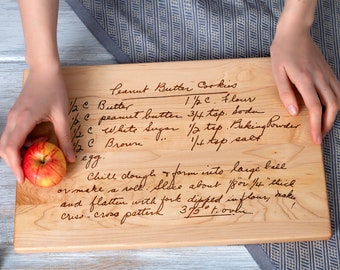 Peanut Butter Cookies
½ C Butter 1½ C. Flour
½ C peanut butter ¾ tsp. Soda
½ C White Sugar ½ tsp. Baking Powder
½ C Brown " ¼ tsp salt
egg
Chill dough & form into large ball
or make a roll. Slice about ⅛ or ¼" thick
and flatten with fork dipped in flour, make
criss-cross pattern 375° oven